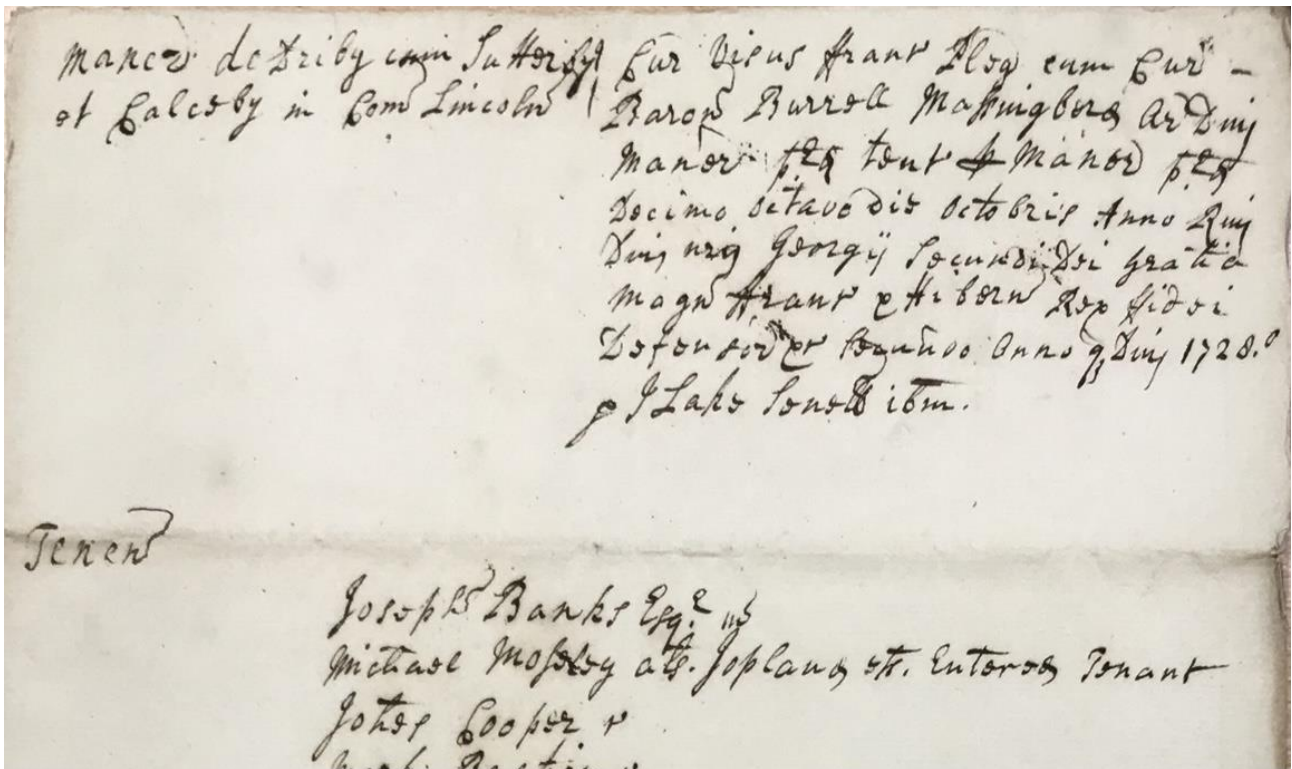 Maner de Driby cum Sutterby
et Calceby in Com Lincoln
Cur Visus Franc Pleg cum Cur -
Baron Burrell Massingberd Ar Dnj
Maner pred tent p Maner pred
Decimo octavo die Octobris Anno Rnj
Dnj nrj Georgij Secundi Dei Gratia
Magn Franc & Hibern Rex Fidei
Defensor &c Secundo Annoq Dnj 1728.°
p J Lake Senell ibm.
Tenen
Joseph Banks Esq.r
Michael Moseley als. Jopland Entered Tenant
Johes Cooper